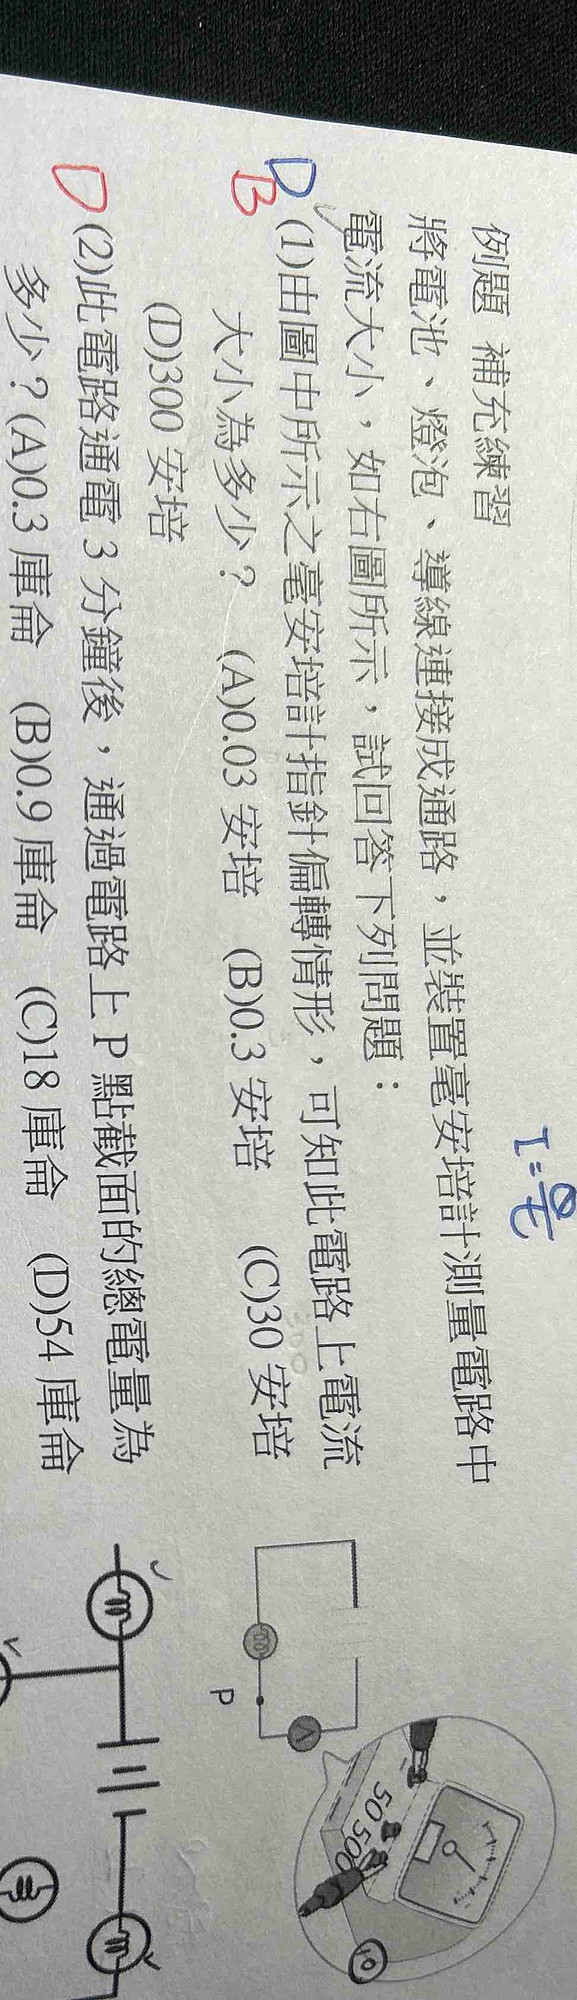 I=Q/t
例題 補充練習
將電池、燈泡、導線連接成通路，並裝置毫安培計測量電路中
電流大小，如右圖所示，試回答下列問題：
D B (1)由圖中所示之毫安培計指針偏轉情形，可知此電路上電流
大小為多少？ (A)0.03 安培 (B)0.3 安培 (C)30 安培
(D)300 安培
D (2)此電路通電 3 分鐘後，通過電路上 P 點截面的總電量為
多少？(A)0.3 庫侖 (B)0.9 庫侖 (C)18 庫侖 (D)54 庫侖
P
A
50 500
10